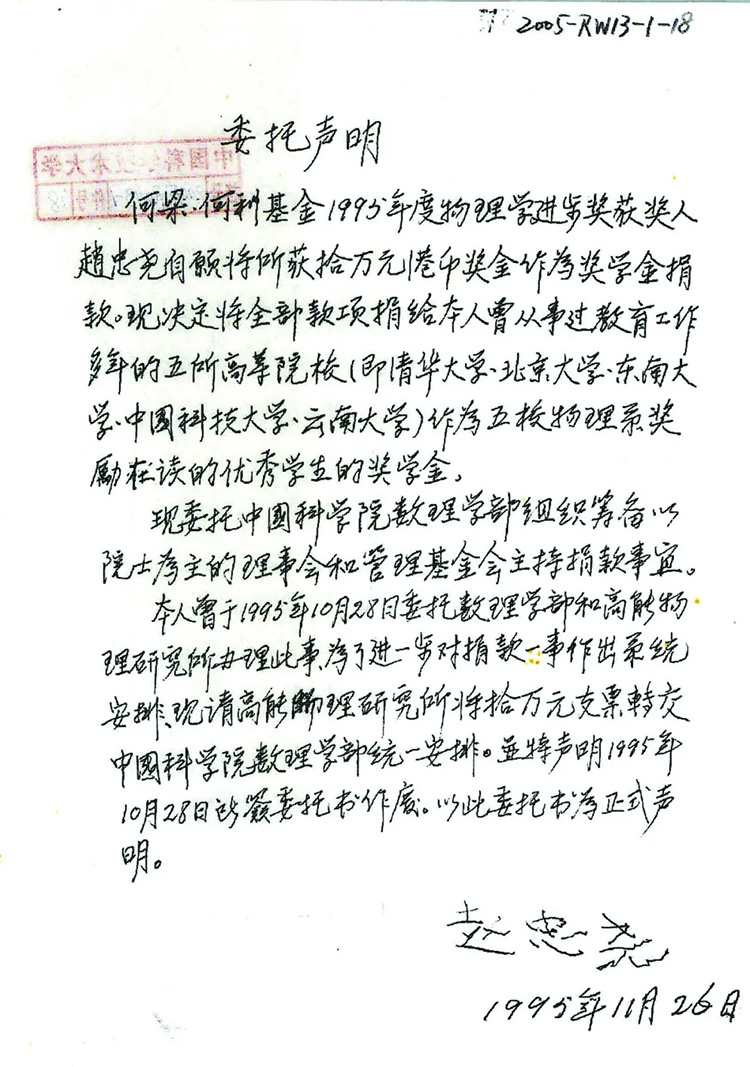 2005-RW13-1-18
委托声明
中国科学技术大学
何梁·何利基金1995年度物理学进步奖获奖人
趙忠尧自願将所获拾万元港币奖金作為奖学金捐
款。现决定将全部款项捐给本人曾从事过教育工作
多年的五所高等院校(即清华大学、北京大学、东南大
学、中國科技大学、云南大学)作為五校物理系奖
勵在读的优秀学生的奖学金。
现委托中國科学院数理学部组织筹备以
院士為主的理事会和管理基金会主持捐款事宜。
本人曾于1995年10月28日委托数理学部和高能物
理研究所办理此事,為了进一步对捐款一事作出系统
安排、现请高能物理研究所将拾万元支票轉交
中國科学院数理学部统一安排。並特声明1995年
10月28日所簽委托书作废。以此委托书為正式声
明。
赵忠尧
1995年11月26日